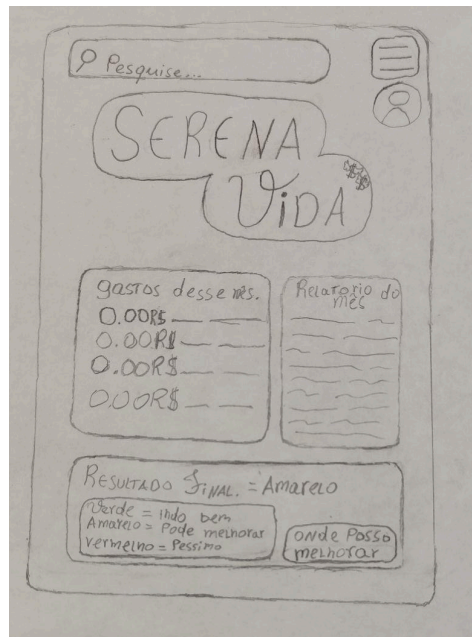 Pesquise...
SERENA
ViDA
$$
gastos desse mês.
0.00R$
0.00R$
0.00R$
0.00R$
Relatorio do
mês
Resultado Final. = Amarelo
Verde = indo bem
Amarelo = Pode melhorar
vermelho = Pessimo
onde Posso
melhorar